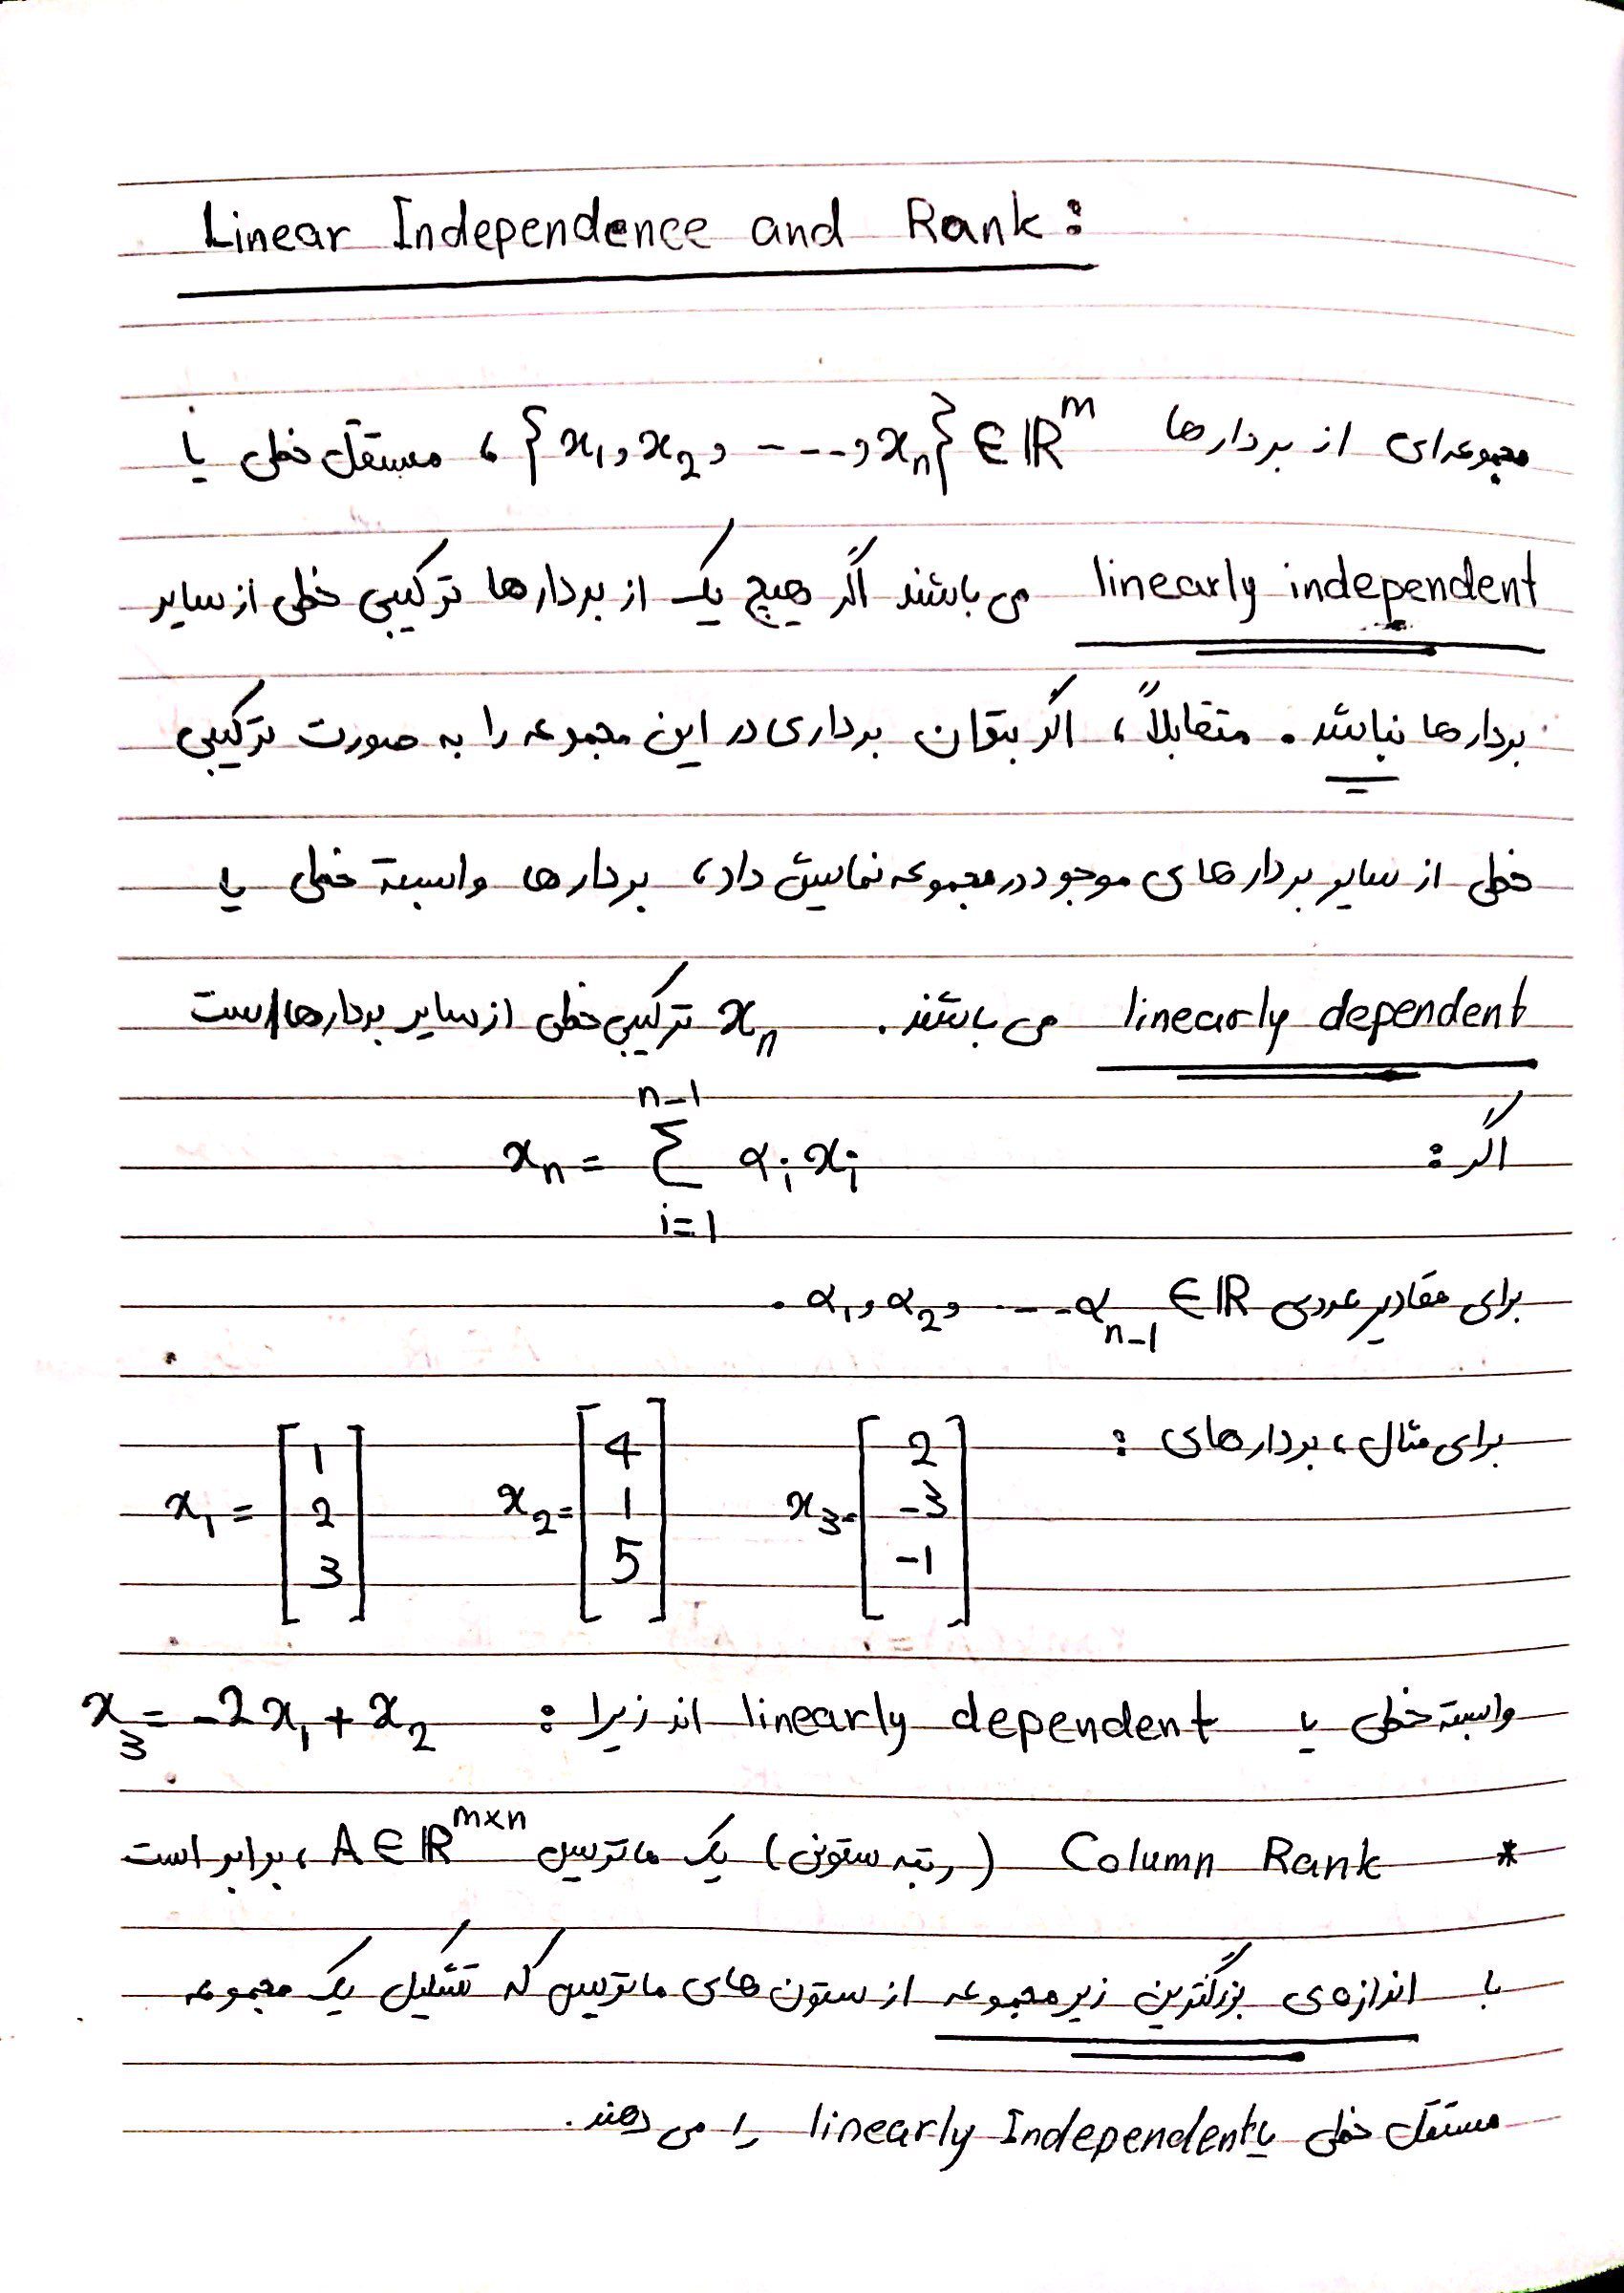 Linear Independence and Rank:
مجموعه‌ای از بردارها {x₁, x₂, ---, xₙ} ∈ ℝᵐ ، مستقل خطی یا
linearly independent می باشند اگر هیچ یک از بردارها ترکیبی خطی از سایر
بردارها نباشد. متقابلاً، اگر بتوان برداری در این مجموعه را به صورت ترکیبی
خطی از سایر بردارهای موجود در مجموعه نمایش داد، بردارها وابستة خطی یا
linearly dependent می باشند. xₙ ترکیبی خطی از سایر بردارها است
اگر: xₙ = Σ_{i=1}^{n-1} αᵢ xᵢ
برای مقادیر عددی α₁, α₂, --- α_{n-1} ∈ ℝ .
برای مثال، بردارهای: x₁ = [1 2 3] x₂ = [4 1 5] x₃ = [2 -3 -1]
وابسته خطی یا linearly dependent اند زیرا: x₃ = -2x₁ + x₂
* Column Rank (رتبه ستونی) یک ماتریس A ∈ ℝ^{m×n} ، برابر است
با اندازه‌ی بزرگترین زیرمجموعه از ستون های ماتریس که تشکیل یک مجموعه
مستقل خطی یا linearly Independent را می دهند.